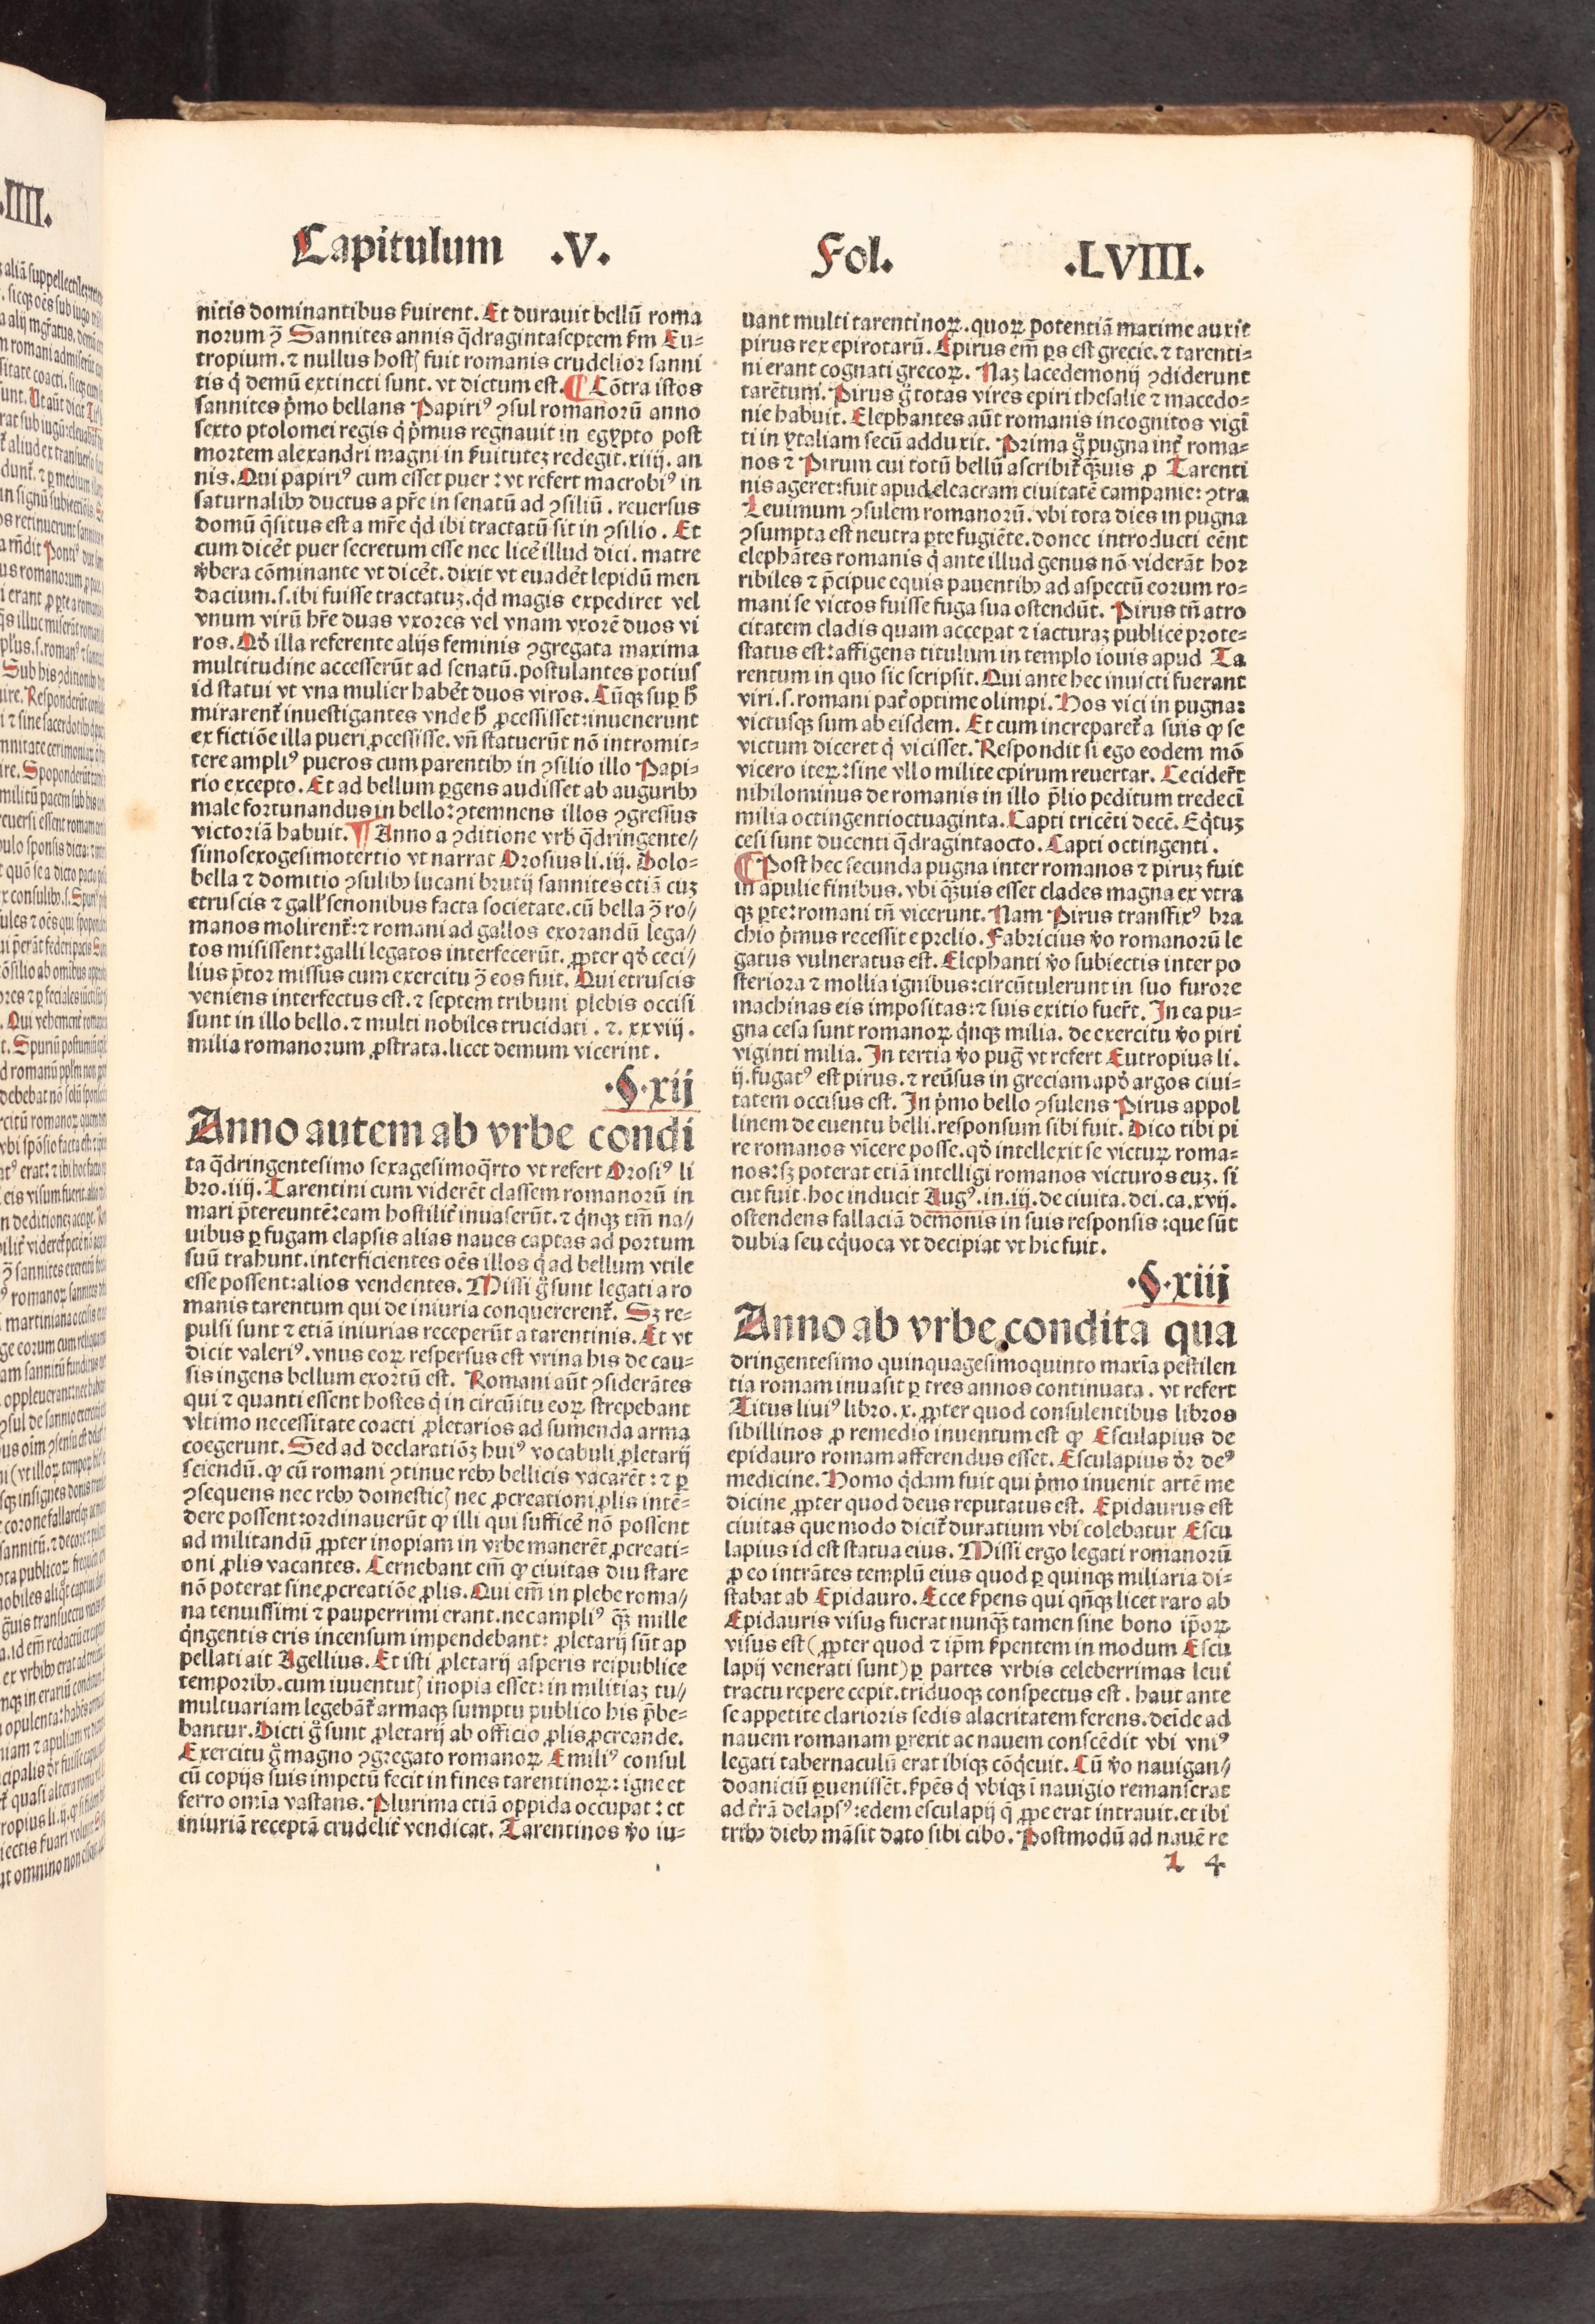 Capitulum .V. Fol. .LVIII.
nitis dominantibus ẜuirent. Et durauit bellū roma
norum ꝯ̄ Sannites annis q̄dragintaseptem ẜm Eu⸗
tropium. ⁊ nullus hostꝭ fuit romanis crudelior sanni
tis q̇ demū extincti sunt. vt dictum est. ¶ Cōtra istos
sannites p̓mo bellans Papiriꝰ ꝯsul romanorū anno
sexto ptolomei regis q̇ p̓mus regnauit in egypto post
mortem alexandri magni in ẜuitutez redegit. xiiij. an
nis. Qui papiriꝰ cum esset puer : vt refert macrobiꝰ in
saturnalibꝫ ductus a pr̄e in senatū ad ꝯsiliū. reuersus
domū q̄situs est a mr̄e q̇d ibi tractatū sit in ꝯsilio. Et
cum dicēt puer secretum esse nec licēt illud dici. matre
v̓bera cōminante vt dicēt. dixit vt euadēt lepidū men
dacium. s. ibi fuisse tractatuz. q̇d magis expediret vel
vnum virū hr̄e duas vxores vel vnam vxorē duos vi
ros. Qd̓ illa referente alijs feminis ꝯgregata maxima
multitudine accesserūt ad senatū. postulantes potius
id statui vt vna mulier habēt duos viros. Cūqꝫ suꝑ h̓
mirarent᷑ inuestigantes vnde h̓ ꝓcessisset: inuenerunt
ex fictiōe illa pueri ꝓcessisse. vn̄ statuerūt nō intromit⸗
tere ampliꝰ pueros cum parentibꝫ in ꝯsilio illo Papi⸗
rio excepto. Et ad bellum ꝑgens audisset ab auguribꝫ
male fortunandus in bello: ꝯtemnens illos ꝯgressus
victoriā habuit. ¶ Anno a ꝯditione vrb̓ q̄dringente//
simosexogesimotertio vt narrat Orosius li. iij. Dolo⸗
bella ⁊ domitio ꝯsulibꝫ lucani brutij sannites etiā cuz
etruscis ⁊ gall̓ senonibus facta societate. cū bella ꝯ̄ ro//
manos molirent᷑: ⁊ romani ad gallos exorandū lega//
tos misissent: galli legatos interfecerūt. ꝓpter qd̓ ceci//
lius p̄tor missus cum exercitu ꝯ̄ eos fuit. Qui etruscis
veniens interfectus est. ⁊ septem tribuni plebis occisi
sunt in illo bello. ⁊ multi nobiles trucidati. ⁊. xxviij.
milia romanorum ꝓstrata. licet demum vicerint.
.§. xij
Anno autem ab vrbe condi
ta q̄dringentesimo sexagesimoq̄rto vt refert Orosiꝰ li
bro. iiij. Tarentini cum viderēt classem romanorū in
mari p̄tereuntē: eam hostilit᷑ inuaserūt. ⁊ q̇nqꝫ tm̄ na//
uibus ꝑ fugam elapsis alias naues captas ad portum
suū trahunt. interficientes oēs illos q̇ ad bellum vtile
esse possent: alios vendentes. Missi g̊ sunt legati a ro
manis tarentum qui de iniuria conquererent᷑. Sꝫ re⸗
pulsi sunt ⁊ etiā iniurias receperūt a tarentinis. Et vt
dicit valeriꝰ. vnus eoꝝ respersus est vrina his de cau⸗
sis ingens bellum exortū est. Romani aūt ꝯsiderātes
qui ⁊ quanti essent hostes q̇ in circūitu eoꝝ strepebant
vltimo necessitate coacti ꝓletarios ad sumenda arma
coegerunt. Sed ad declaratiōꝫ huiꝰ vocabuli ꝓletarij
sciendū. ꝙ cū romani ꝯtinue rebꝫ bellicis vacarēt: ⁊ ꝑ
ꝯsequens nec rebꝫ domesticꝭ nec ꝓcreationi ꝓlis intē⸗
dere possent: ordinauerūt ꝙ illi qui sufficē nō possent
ad militandū ꝓpter inopiam in vrbe manerēt ꝓcreati⸗
oni ꝓlis vacantes. Cernebant em̄ ꝙ ciuitas diu stare
nō poterat sine ꝓcreatiōe ꝓlis. Qui em̄ in plebe roma//
na tenuissimi ⁊ pauperrimi erant. nec ampliꝰ q̄ꝫ mille
q̇ngentis eris incensum impendebant: ꝓletarij sūt ap
pellati ait Agellius. Et isti ꝓletarij asperis reipublice
temporibꝫ. cum iuuentutꝭ inopia esset: in militiaz tu//
multuariam legebāt᷑ armaqꝫ sumptu publico his p̄be⸗
bantur. Dicti g̊ sunt ꝓletarij ab officio ꝓlis ꝓcreande.
Exercitu g̊ magno ꝯgregato romanoꝝ Emiliꝰ consul
cū copijs suis impetū fecit in fines tarentinoꝝ: igne et
ferro omia vastans. Plurima etiā oppida occupat: et
iniuriā receptā crudelit᷑ vendicat. Tarentinos v̓o iu⸗
uant multi tarentinoꝝ. quoꝝ potentiā maxime auxit
pirus rex epirotarū. Epirus em̄ ꝑs est grecie. ⁊ tarenti⸗
ni erant cognati grecoꝝ. Naz lacedemonij ꝯdiderunt
tarētum. Pirus g̊ totas vires epiri thesalie ⁊ macedo⸗
nie habuit. Elephantes aūt romanis incognitos vigi
ti in ytaliam secū adduxit. Prima g̊ pugna int᷑ roma⸗
nos ⁊ Pirum cui totū bellū ascribit᷑ q̄ꝫuis ꝓ Tarenti
nis ageret: fuit apud elcacram ciuitatē campanie: ꝯtra
Leuimum ꝯsulem romanorū. vbi tota dies in pugna
ꝯsumpta est neutra ꝑte fugiēte. donec introducti eēnt
elephātes romanis q̇ ante illud genus nō viderāt hor
ribiles ⁊ p̄cipue equis pauentibꝫ ad aspectū eorum ro⸗
mani se victos fuisse fuga sua ostendūt. Pirus tn̄ atro
citatem cladis quam acceꝑat ⁊ iacturaz publice prote⸗
status est: affigens titulum in templo iouis apud Ta
rentum in quo sic scripsit. Qui ante hec inuicti fuerant
viri. s. romani pat᷑ optime olimpi. Hos vici in pugna:
victusqꝫ sum ab eisdem. Et cum increparet᷑ a suis ꝙ se
victum diceret q̇ vicisset. Respondit si ego eodem mō
vicero iteꝝ: sine vllo milite epirum reuertar. Ceciderūt
nihilominus de romanis in illo p̄lio peditum tredecī
milia octingentioctuaginta. Capti tricēti decē. Eq̇tuz
cesi sunt ducenti q̄dragintaocto. Capti octingenti.
¶ Post hec secunda pugna inter romanos ⁊ piruz fuit
in apulie finibus. vbi q̄ꝫuis esset clades magna ex vtra
qꝫ ꝑte: romani tn̄ vicerunt. Nam Pirus transfixꝰ bra
chio p̓mus recessit e prelio. Fabricius v̓o romanorū le
gatus vulneratus est. Elephanti v̓o subiectis inter po
steriora ⁊ mollia ignibus: circūtulerunt in suo furore
machinas eis impositas: ⁊ suis exitio fuer̄t. In ea pu⸗
gna cesa sunt romanoꝝ q̇nqꝫ milia. de exercitu v̓o piri
viginti milia. In tertia v̓o pug̅ vt refert Eutropius li.
ij. fugatꝰ est pirus. ⁊ reuersus in greciam apd̓ argos ciui⸗
tatem occisus est. In p̓mo bello ꝯsulens Pirus appol
linem de euentu belli. responsum sibi fuit. Dico tibi pi
re romanos vīcere posse. qd̓ intellexit se victuꝝ roma⸗
nos: sꝫ poterat etiā intelligi romanos victuros euz. si
cut fuit. hoc inducit Augꝰ. in. iij. de ciuita. dei. ca. xvij.
ostendens fallaciā demonis in suis responsis: que sūt
dubia seu eq̇uoca vt decipiat vt hic fuit.
.§. xiij
Anno ab vrbe condita qua
dringentesimo quinquagesimoquinto maxīa pestilen
tia romam inuasit ꝑ tres annos continuata. vt refert
Titus liuiꝰ libro. x. ꝓpter quod consulentibus libros
sibillinos ꝓ remedio inuentum est ꝙ Esculapius de
epidauro romam afferendus esset. Esculapius dr̄ deꝰ
medicine. Homo q̇dam fuit qui p̓mo inuenit artē me
dicine ꝓpter quod deus reputatus est. Epidaurus est
ciuitas que modo dicit᷑ duratium vbi colebatur Escu
lapius id est statua eius. Missi ergo legati romanorū
ꝓ eo intrātes templū eius quod ꝑ quinqꝫ miliaria di⸗
stabat ab Epidauro. Ecce ẜpens qui qn̄qꝫ licet raro ab
Epidauris visus fuerat nunq̄ꝫ tamen sine bono ip̄oꝝ
visus est (ꝓpter quod ⁊ ip̄m ẜpentem in modum Escu
lapij venerati sunt) ꝑ partes vrbis celeberrimas leui
tractu repere cepit. triduoqꝫ conspectus est. haut ante
se appetite clarioris sedis alacritatem ferens. deīde ad
nauem romanam ꝑrexit ac nauem conscēdit vbi vniꝰ
legati tabernaculū erat ibiqꝫ cōq̇cuit. Cū v̓o nauigan//
do aniciū ꝑuenissēt. ẜpēs q̇ vbiqꝫ ī nauigio remanserat
ad t᷑rā delapsꝰ: edem esculapij q̄ ꝓpe erat intrauit. et ibi
tribꝫ diebꝫ māsit dato sibi cibo. Postmodū ad nauē re
l 4